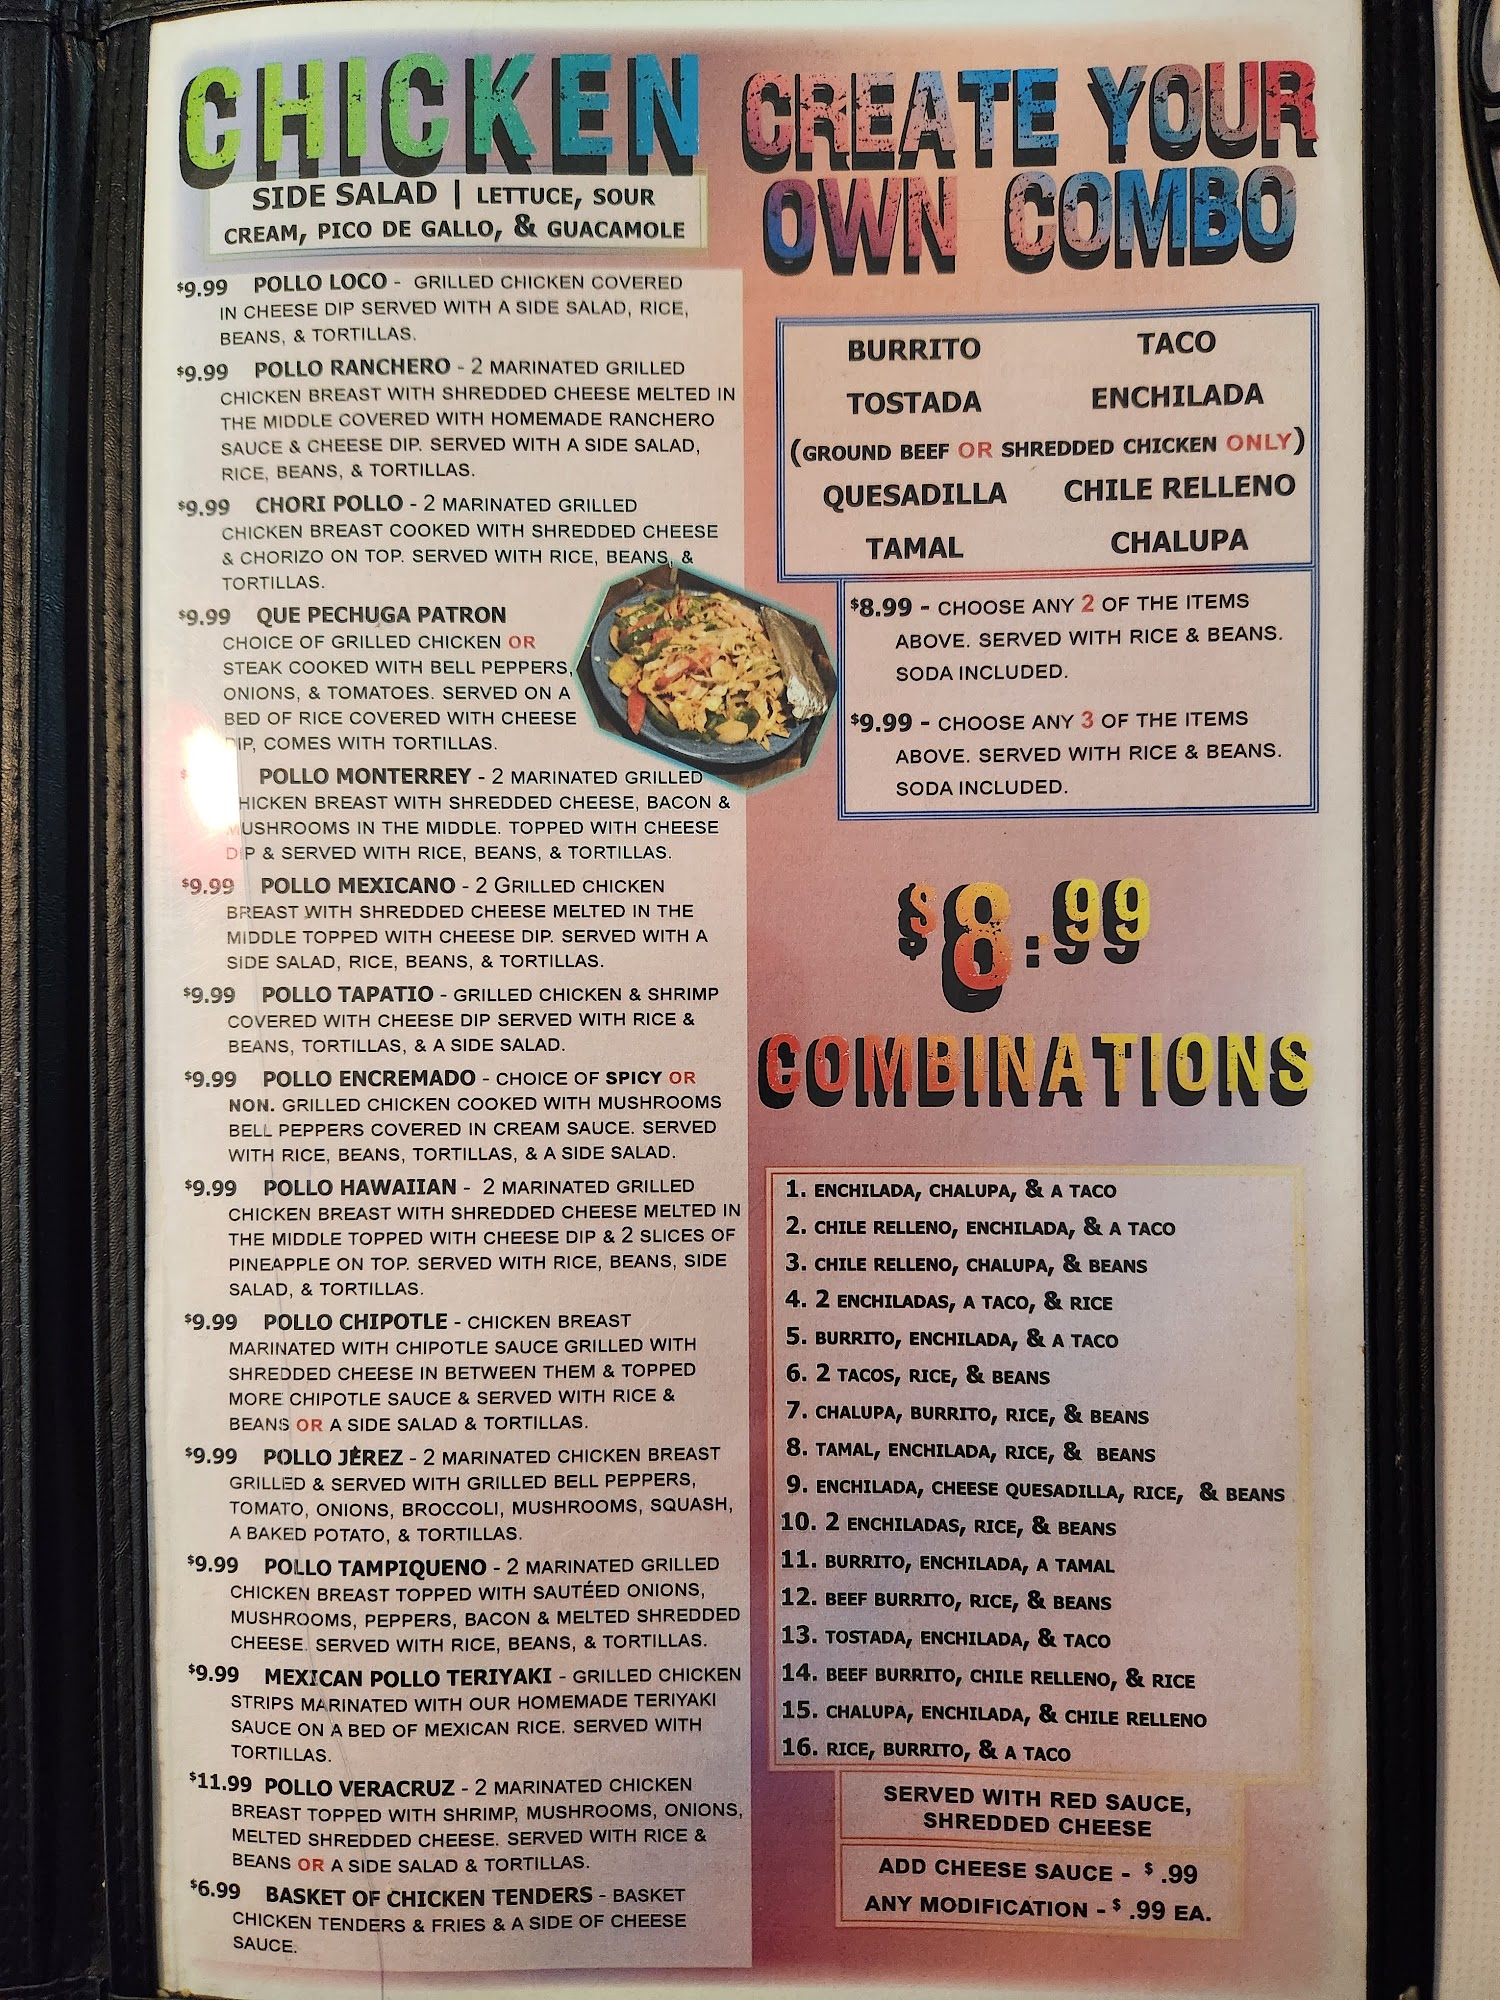 CHICKEN
SIDE SALAD | LETTUCE, SOUR
CREAM, PICO DE GALLO, & GUACAMOLE
$9.99 POLLO LOCO - GRILLED CHICKEN COVERED
IN CHEESE DIP SERVED WITH A SIDE SALAD, RICE,
BEANS, & TORTILLAS.
$9.99 POLLO RANCHERO - 2 MARINATED GRILLED
CHICKEN BREAST WITH SHREDDED CHEESE MELTED IN
THE MIDDLE COVERED WITH HOMEMADE RANCHERO
SAUCE & CHEESE DIP. SERVED WITH A SIDE SALAD,
RICE, BEANS, & TORTILLAS.
$9.99 CHORI POLLO - 2 MARINATED GRILLED
CHICKEN BREAST COOKED WITH SHREDDED CHEESE
& CHORIZO ON TOP. SERVED WITH RICE, BEANS, &
TORTILLAS.
$9.99 QUE PECHUGA PATRON
CHOICE OF GRILLED CHICKEN OR
STEAK COOKED WITH BELL PEPPERS,
ONIONS, & TOMATOES. SERVED ON A
BED OF RICE COVERED WITH CHEESE
DIP, COMES WITH TORTILLAS.
POLLO MONTERREY - 2 MARINATED GRILLED
CHICKEN BREAST WITH SHREDDED CHEESE, BACON &
MUSHROOMS IN THE MIDDLE. TOPPED WITH CHEESE
DIP & SERVED WITH RICE, BEANS, & TORTILLAS.
$9.99 POLLO MEXICANO - 2 GRILLED CHICKEN
BREAST WITH SHREDDED CHEESE MELTED IN THE
MIDDLE TOPPED WITH CHEESE DIP. SERVED WITH A
SIDE SALAD, RICE, BEANS, & TORTILLAS.
$9.99 POLLO TAPATIO - GRILLED CHICKEN & SHRIMP
COVERED WITH CHEESE DIP SERVED WITH RICE &
BEANS, TORTILLAS, & A SIDE SALAD.
$9.99 POLLO ENCREMADO - CHOICE OF SPICY OR
NON. GRILLED CHICKEN COOKED WITH MUSHROOMS
BELL PEPPERS COVERED IN CREAM SAUCE. SERVED
WITH RICE, BEANS, TORTILLAS, & A SIDE SALAD.
$9.99 POLLO HAWAIIAN - 2 MARINATED GRILLED
CHICKEN BREAST WITH SHREDDED CHEESE MELTED IN
THE MIDDLE TOPPED WITH CHEESE DIP & 2 SLICES OF
PINEAPPLE ON TOP. SERVED WITH RICE, BEANS, SIDE
SALAD, & TORTILLAS.
$9.99 POLLO CHIPOTLE - CHICKEN BREAST
MARINATED WITH CHIPOTLE SAUCE GRILLED WITH
SHREDDED CHEESE IN BETWEEN THEM & TOPPED
MORE CHIPOTLE SAUCE & SERVED WITH RICE &
BEANS OR A SIDE SALAD & TORTILLAS.
$9.99 POLLO JÉREZ - 2 MARINATED CHICKEN BREAST
GRILLED & SERVED WITH GRILLED BELL PEPPERS,
TOMATO, ONIONS, BROCCOLI, MUSHROOMS, SQUASH,
A BAKED POTATO, & TORTILLAS.
$9.99 POLLO TAMPIQUENO - 2 MARINATED GRILLED
CHICKEN BREAST TOPPED WITH SAUTÉED ONIONS,
MUSHROOMS, PEPPERS, BACON & MELTED SHREDDED
CHEESE. SERVED WITH RICE, BEANS, & TORTILLAS.
$9.99 MEXICAN POLLO TERIYAKI - GRILLED CHICKEN
STRIPS MARINATED WITH OUR HOMEMADE TERIYAKI
SAUCE ON A BED OF MEXICAN RICE. SERVED WITH
TORTILLAS.
$11.99 POLLO VERACRUZ - 2 MARINATED CHICKEN
BREAST TOPPED WITH SHRIMP, MUSHROOMS, ONIONS,
MELTED SHREDDED CHEESE. SERVED WITH RICE &
BEANS OR A SIDE SALAD & TORTILLAS.
$6.99 BASKET OF CHICKEN TENDERS - BASKET
CHICKEN TENDERS & FRIES & A SIDE OF CHEESE
SAUCE.
CREATE YOUR
OWN COMBO
BURRITO TACO
TOSTADA ENCHILADA
(GROUND BEEF OR SHREDDED CHICKEN ONLY)
QUESADILLA CHILE RELLENO
TAMAL CHALUPA
$8.99 - CHOOSE ANY 2 OF THE ITEMS
ABOVE. SERVED WITH RICE & BEANS.
SODA INCLUDED.
$9.99 - CHOOSE ANY 3 OF THE ITEMS
ABOVE. SERVED WITH RICE & BEANS.
SODA INCLUDED.
$8.99
COMBINATIONS
1. ENCHILADA, CHALUPA, & A TACO
2. CHILE RELLENO, ENCHILADA, & A TACO
3. CHILE RELLENO, CHALUPA, & BEANS
4. 2 ENCHILADAS, A TACO, & RICE
5. BURRITO, ENCHILADA, & A TACO
6. 2 TACOS, RICE, & BEANS
7. CHALUPA, BURRITO, RICE, & BEANS
8. TAMAL, ENCHILADA, RICE, & BEANS
9. ENCHILADA, CHEESE QUESADILLA, RICE, & BEANS
10. 2 ENCHILADAS, RICE, & BEANS
11. BURRITO, ENCHILADA, A TAMAL
12. BEEF BURRITO, RICE, & BEANS
13. TOSTADA, ENCHILADA, & TACO
14. BEEF BURRITO, CHILE RELLENO, & RICE
15. CHALUPA, ENCHILADA, & CHILE RELLENO
16. RICE, BURRITO, & A TACO
SERVED WITH RED SAUCE,
SHREDDED CHEESE
ADD CHEESE SAUCE - $ .99
ANY MODIFICATION - $ .99 EA.